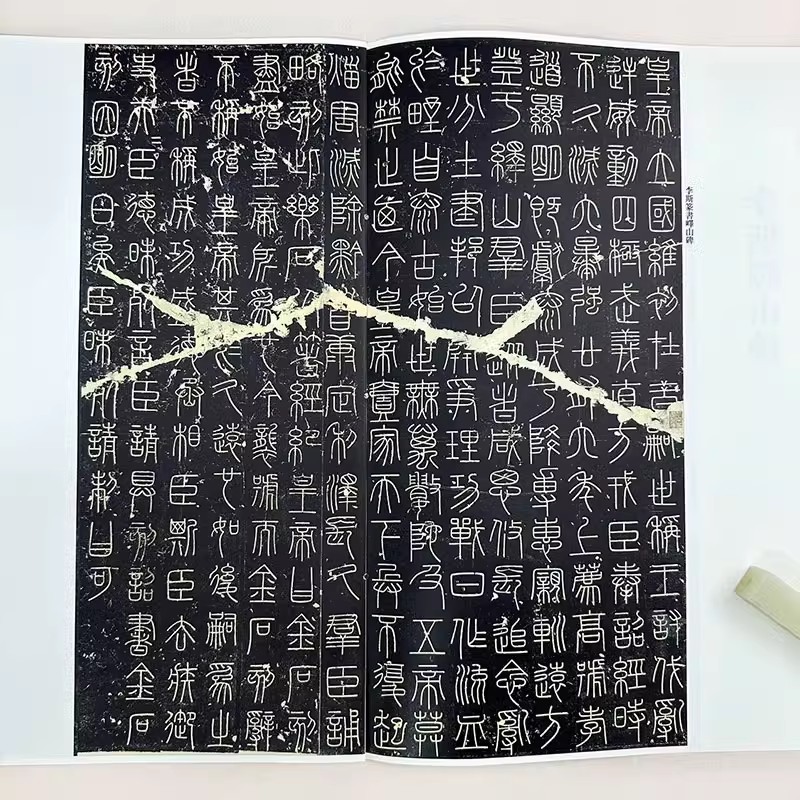 李斯篆書嶧山碑
皇帝立國維初在昔嗣世稱王討伐亂
逆威動四極武義直方戎臣奉詔經時
不久滅六暴強廿有六年上薦高號孝
道顯明既獻泰成乃降專惠親巡遠方
登于繹山羣臣從者咸思攸長追念亂
世分土建邦以開爭理功戰日作流血
於野自泰古始世無萬數陀及五帝莫
能禁止廼今皇帝壹家天下兵不復起
災害滅除黔首康定利澤長久羣臣誦
略刻此樂石以箸經紀皇帝曰金石刻
盡始皇帝所為也今襲號而金石刻辭
不稱始皇帝其於久遠也如後嗣為之
者不稱成功盛德丞相臣斯臣去疾御
史夫臣德昧死言臣請具刻詔書金石
刻因明白矣臣昧死請制曰可